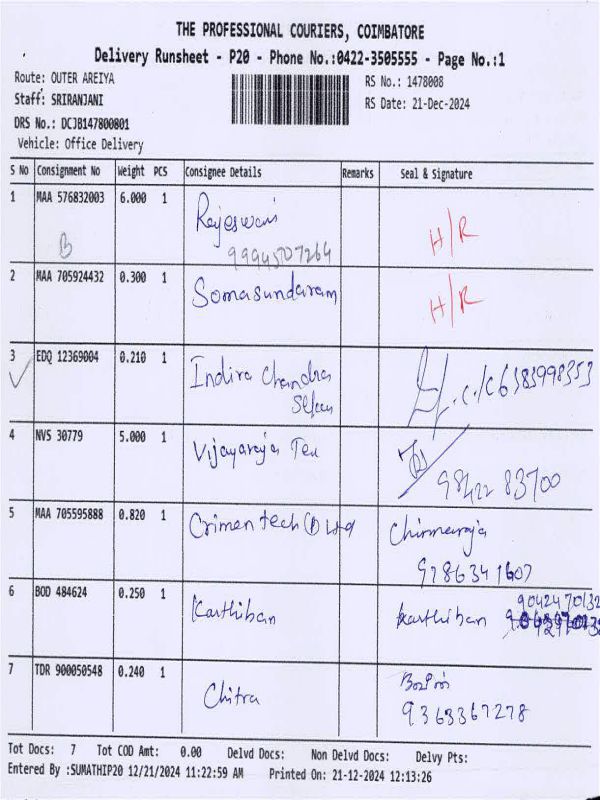 THE PROFESSIONAL COURIERS, COIMBATORE
Delivery Runsheet - P20 - Phone No.:0422-3505555 - Page No.:1
Route: OUTER AREIYA RS No.: 1478008
Staff: SRIRANJANI RS Date: 21-Dec-2024
DRS No.: DCJB147800801
Vehicle: Office Delivery
S No Consignment No Weight PCS Consignee Details Remarks Seal & Signature
1 MAA 576832003 6.000 1 Rajeswari H/R
B 9994507264
2 MAA 705924432 0.300 1 Somasundaram H/R
3 EDQ 12369004 0.210 1 Indira Chandra 6383998353
4 NVS 30779 5.000 1 Vijayaraja Tex
98422 83700
5 MAA 705595888 0.820 1 Crimentech
9786341607
6 BOD 484624 0.250 1 Karthiban Karthiban 9042470132
7 TDR 900050548 0.240 1 Chitra
9363367278
Tot Docs: 7 Tot COD Amt: 0.00 Delvd Docs: Non Delvd Docs: Delvy Pts:
Entered By :SUMATHIP20 12/21/2024 11:22:59 AM Printed On: 21-12-2024 12:13:26